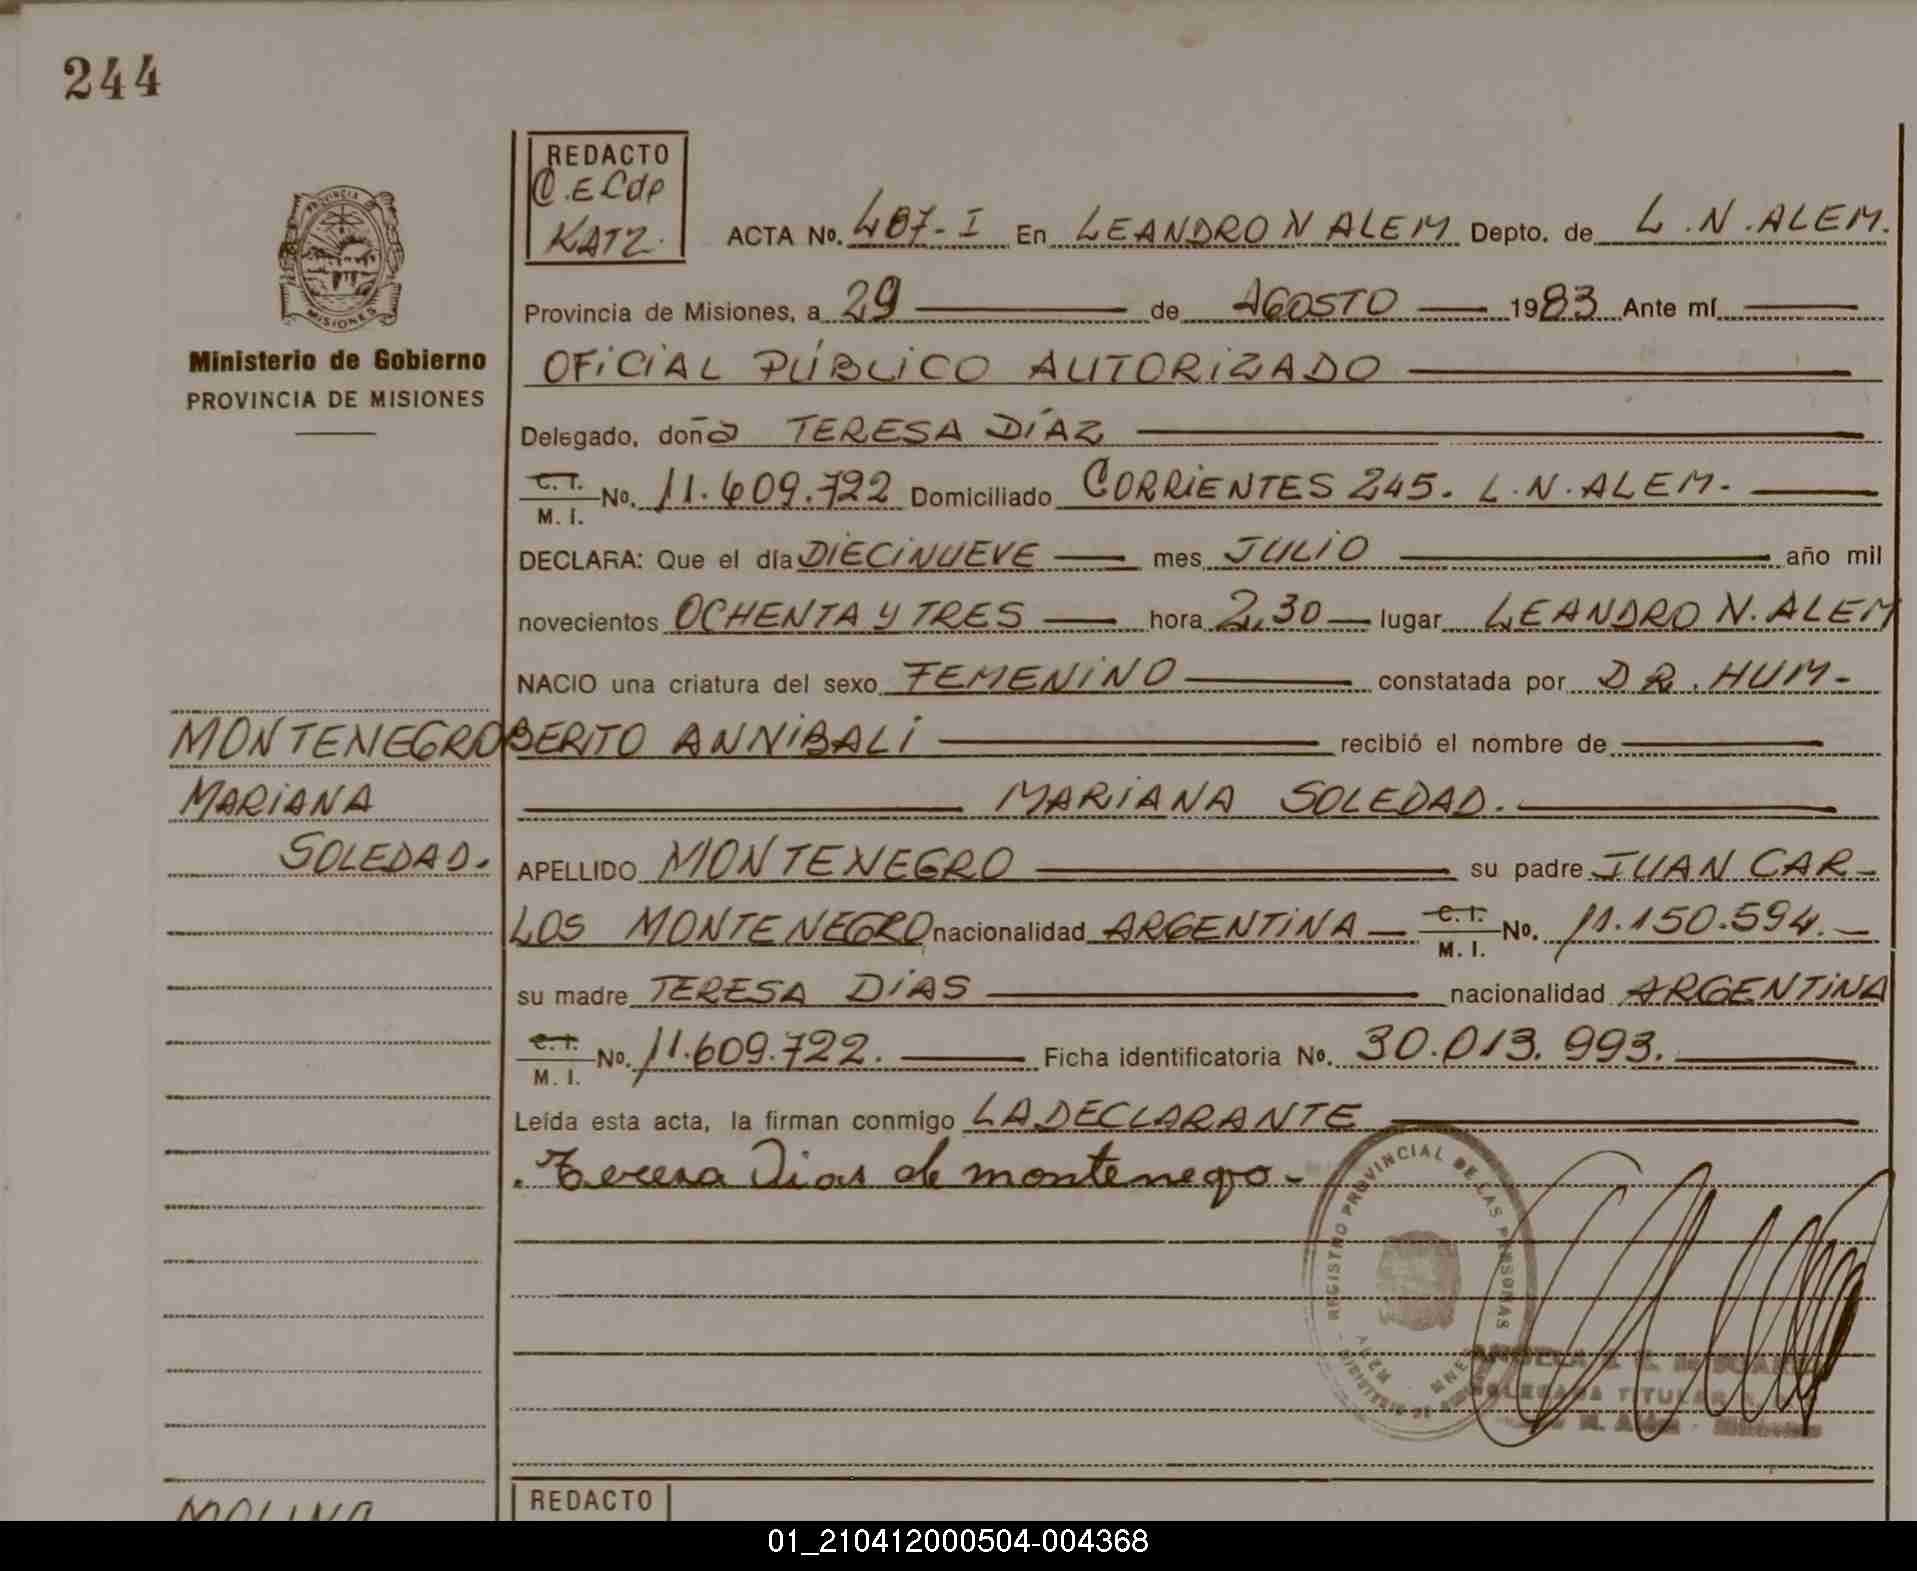 244
REDACTO
C.ELdP
KATZ.
PROVINCIA
MISIONES
Ministerio de Gobierno
PROVINCIA DE MISIONES
ACTA No. 487-I En LEANDRO N ALEM Depto. de L.N.ALEM.
Provincia de Misiones, a 29 de AGOSTO 1983 Ante mí
OFICIAL PÚBLICO AUTORIZADO
Delegado, doña TERESA DÍAZ
C. I. M. I. No. 11.609.722 Domiciliado CORRIENTES 245. L.N.ALEM.
DECLARA: Que el día DIECINUEVE mes JULIO año mil
novecientos OCHENTA Y TRES hora 2,30 lugar LEANDRO N. ALEM
NACIO una criatura del sexo FEMENINO constatada por DR. HUM-
BERTO ANNIBALI recibió el nombre de
MARIANA SOLEDAD.
MONTENEGRO
MARIANA
SOLEDAD.
APELLIDO MONTENEGRO su padre JUAN CAR-
LOS MONTENEGRO nacionalidad ARGENTINA C. I. M. I. No. 11.150.594.
su madre TERESA DIAS nacionalidad ARGENTINA
C. I. M. I. No. 11.609.722. Ficha identificatoria No. 30.013.993.
Leída esta acta, la firman conmigo LA DECLARANTE
Teresa Dias de montenegro-
REGISTRO PROVINCIAL DE LAS PERSONAS
TITULAR
N. Alem
MOLINA
REDACTO
01_210412000504-004368